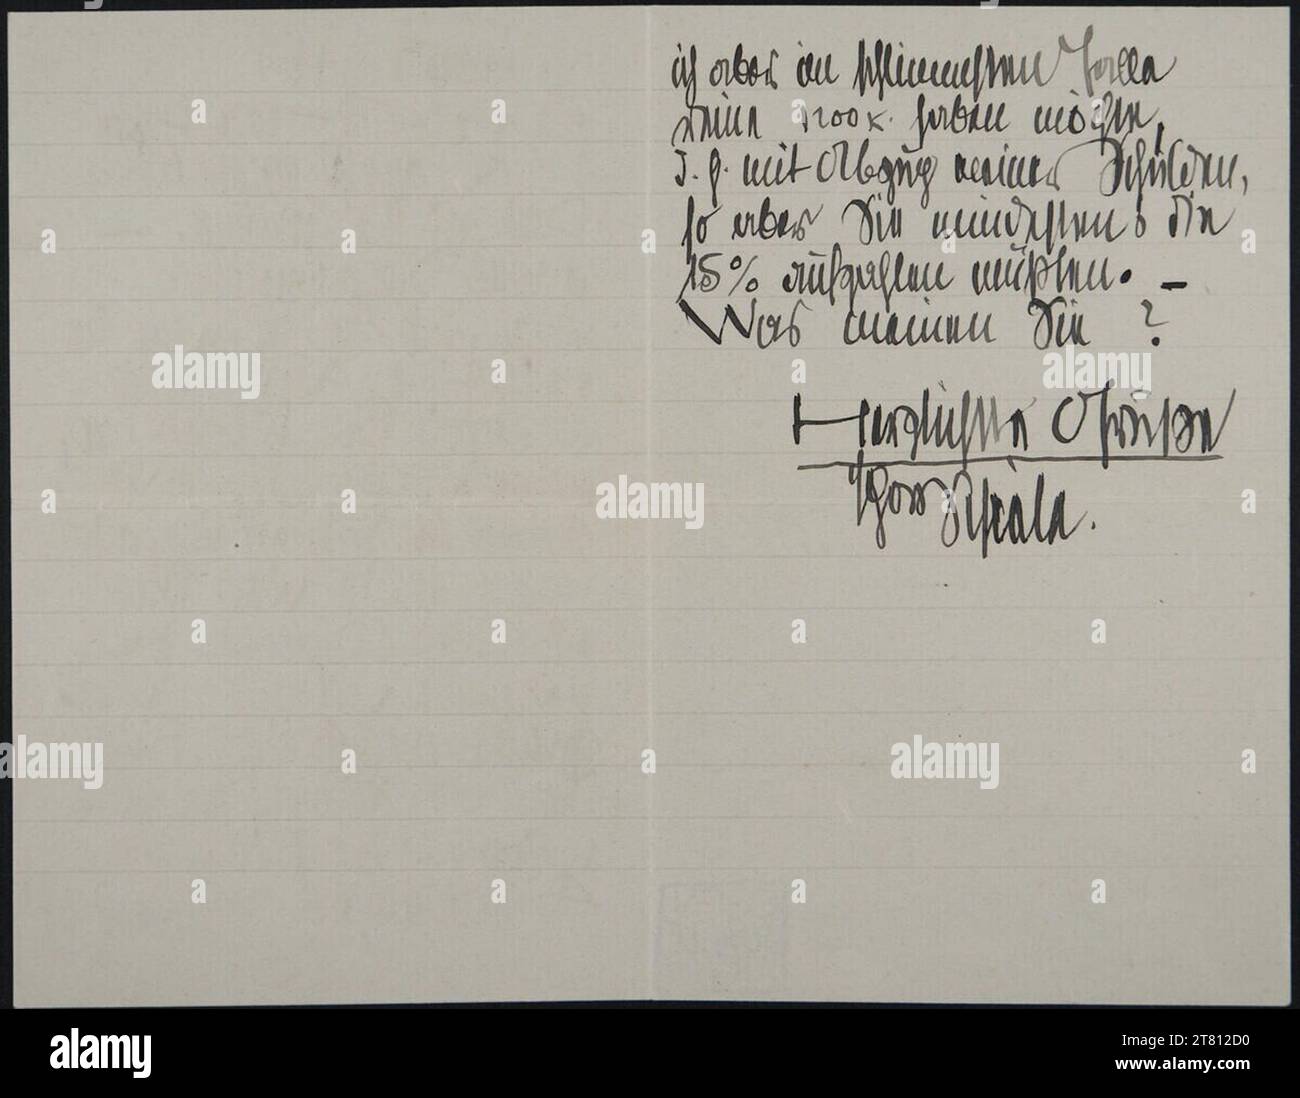 ich aber im schlimmsten Falle
meine 1200 K. haben möchte,
d. h. mit Abzug meiner Schulden,
so aber Sie mindestens die
15% aufzahlen müßten. –
Was meinen Sie ?
Herzlichste Grüße
Egon Schiele.
alamy
alamy
alamy
alamy
alamy
a
alamy
Image ID: 2T812D0
www.alamy.com